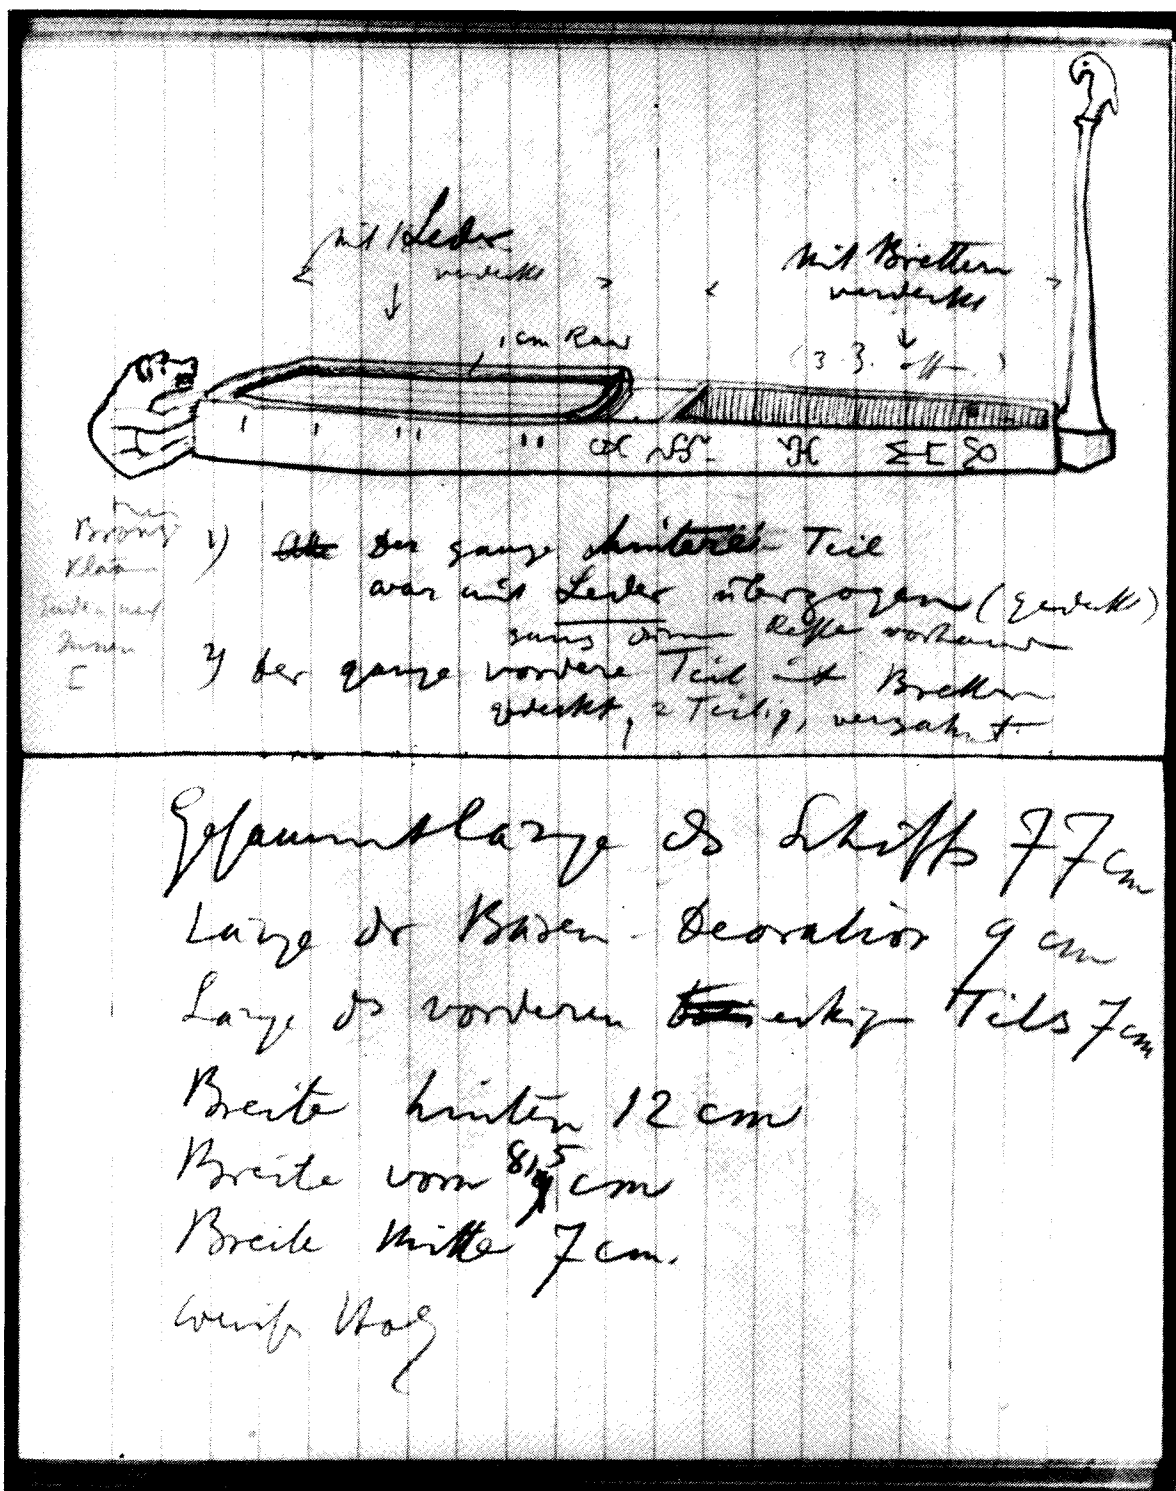 mit Leder
verdeckt
mit Brettern
verdeckt
1 cm Rand
(z. Z. off )
1) Der ganze hintere Teil
war mit Leder überzogen (gedeckt)
ganz dünn Reste vorhanden
2) Der ganze vordere Teil ist Brettern
gedeckt, 2 Teilig, verzahnt.
Bronz
Gesammtlänge ds Schiffs 77 cm
Länge dr Basen-Decoration 9 cm
Länge ds vorderen eckigen Teils 7 cm
Breite hinten 12 cm
Breite vorn 8,5 cm
Breite Mitte 7 cm.
weiss Holz